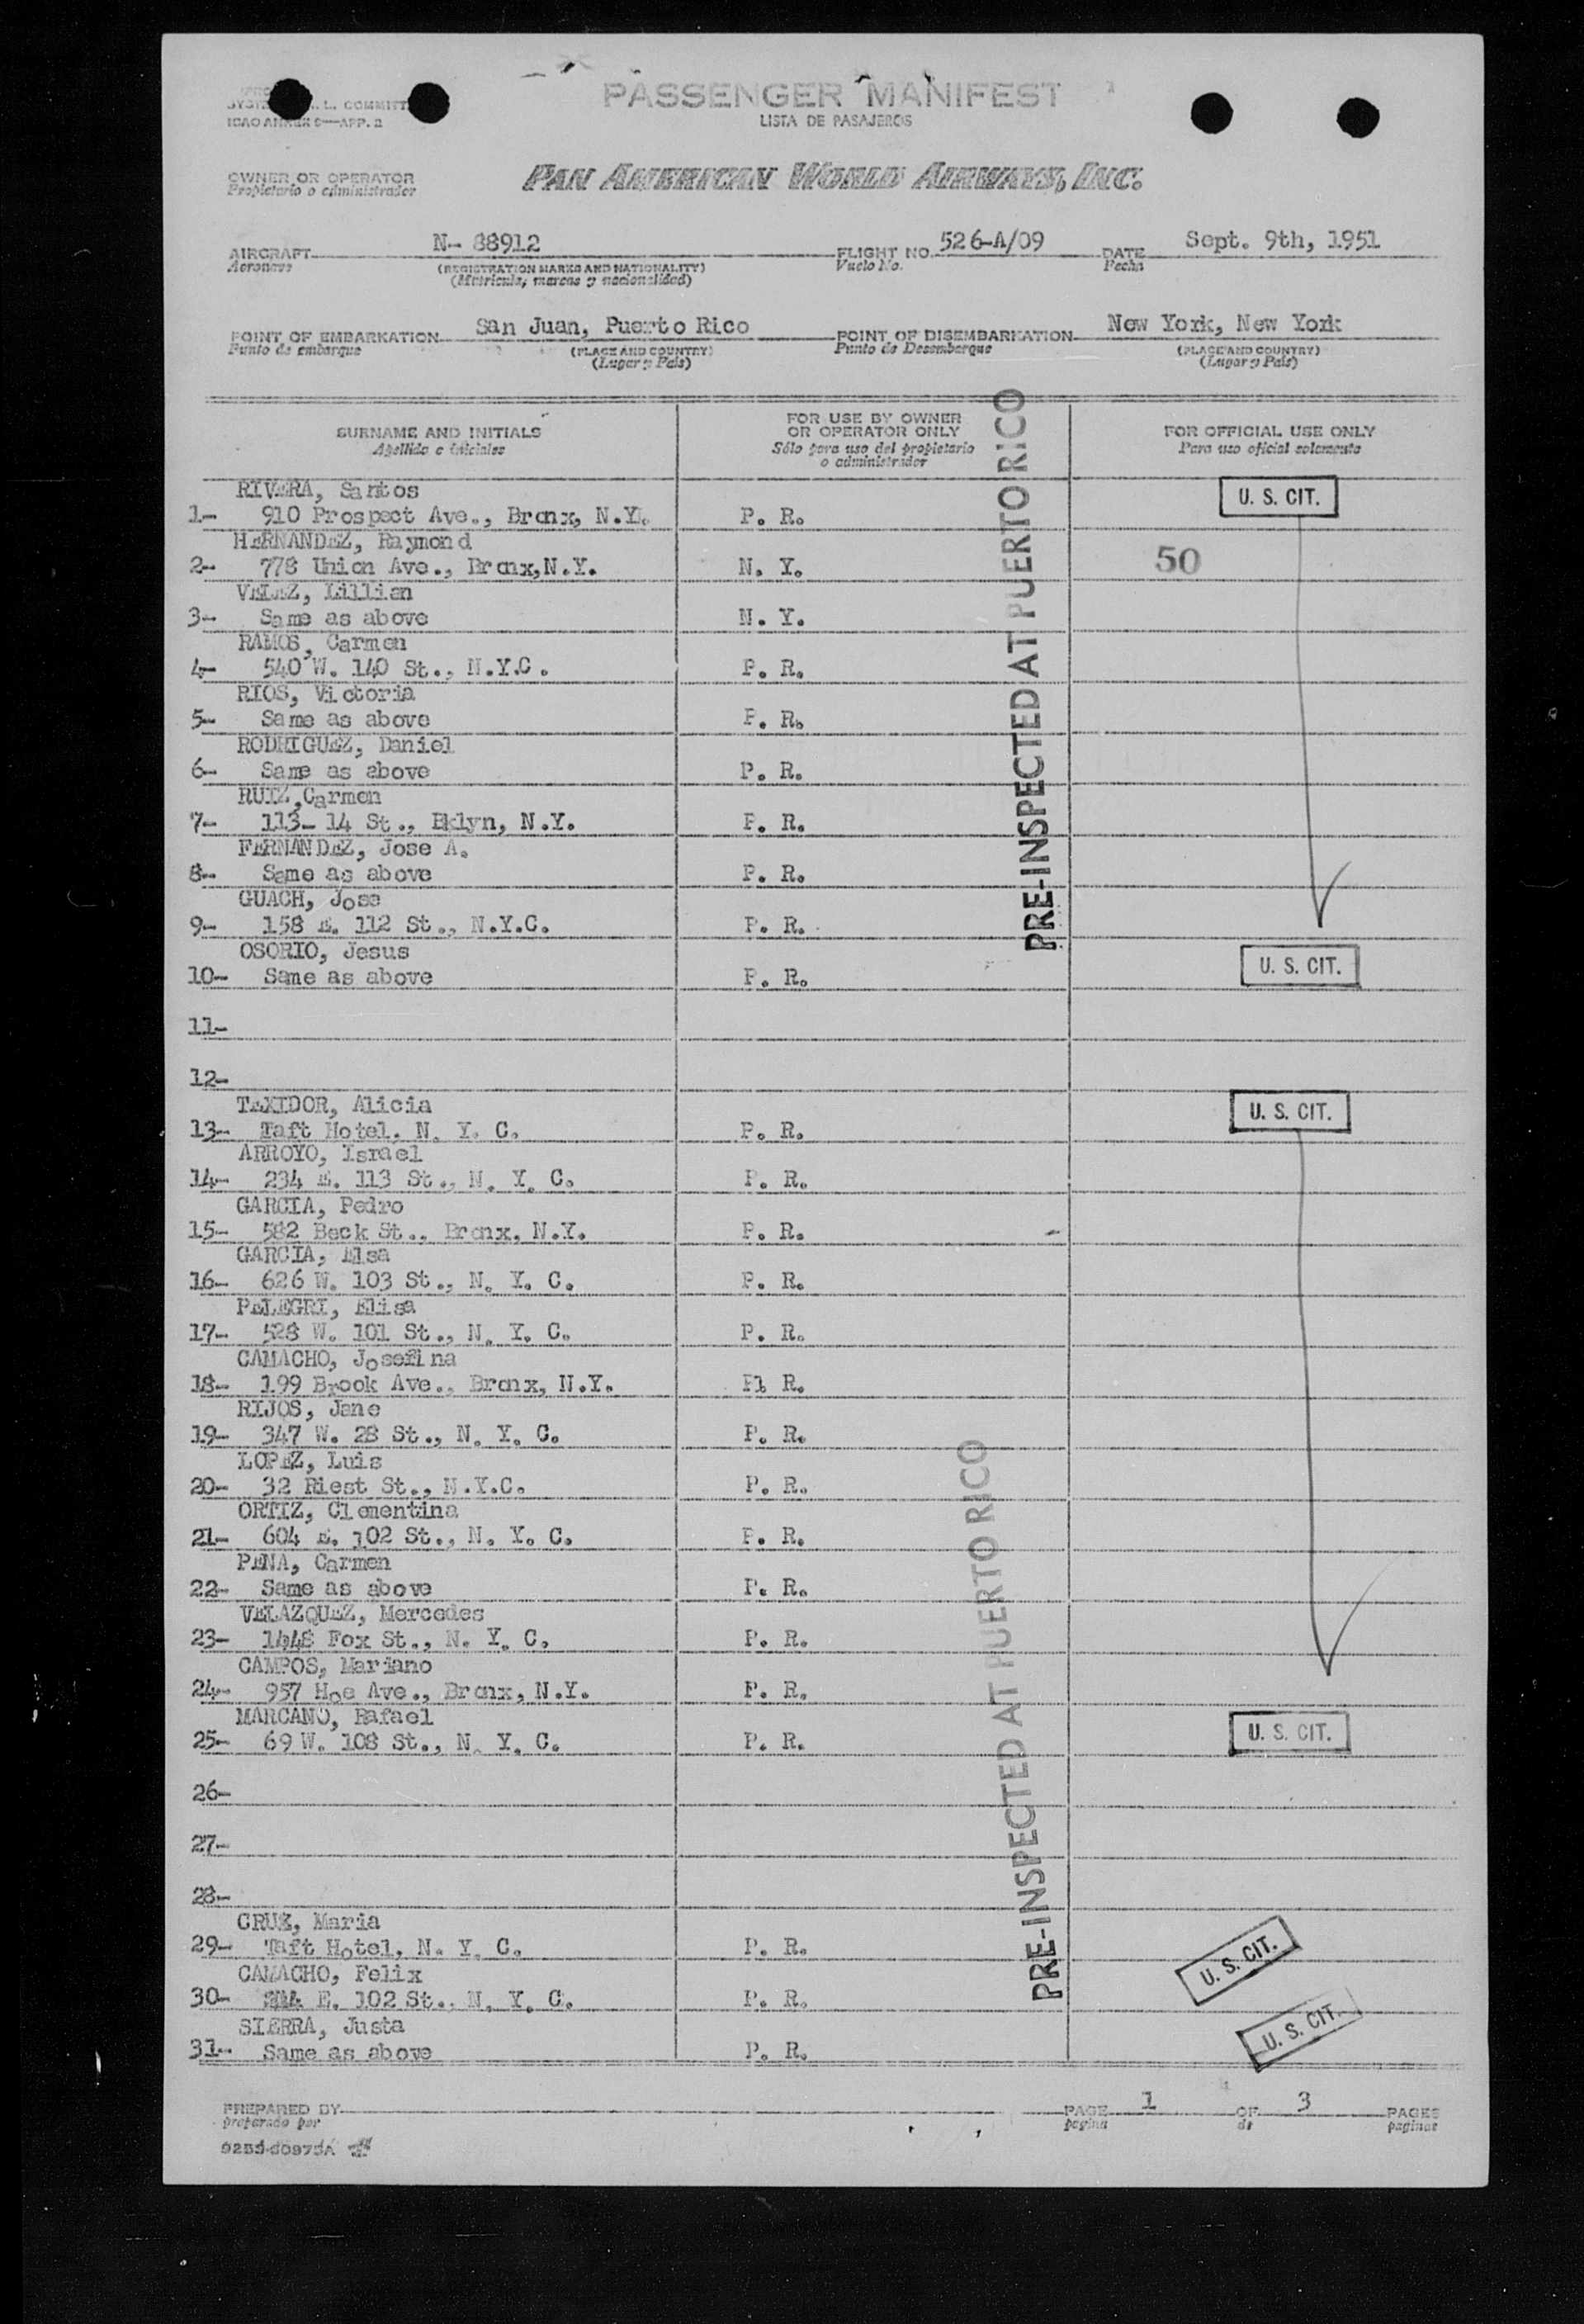 L. COMMITT
ICAO ANNEX 9—APP. 2
PASSENGER MANIFEST
LISTA DE PASAJEROS
OWNER OR OPERATOR
Propietario o administrador
PAN AMERICAN WORLD AIRWAYS, INC.
AIRCRAFT N- 88912 FLIGHT NO. 526-A/09 DATE Sept. 9th, 1951
Aeronave (REGISTRATION MARKS AND NATIONALITY) Vuelo No. Fecha
(Matricula, marcas y nacionalidad)
POINT OF EMBARKATION San Juan, Puerto Rico POINT OF DISEMBARKATION New York, New York
Punto de embarque (PLACE AND COUNTRY) Punto de Desembarque (PLACE AND COUNTRY)
(Lugar y Pais) (Lugar y Pais)
SURNAME AND INITIALS
Apellido e iniciales
FOR USE BY OWNER
OR OPERATOR ONLY
Sólo para uso del propietario
o administrador
FOR OFFICIAL USE ONLY
Para uso oficial solamente
PRE-INSPECTED AT PUERTO RICO
RIVERA, Santos U. S. CIT.
1- 910 Prospect Ave., Bronx, N.Y. P. R.
HERNANDEZ, Raymond
2- 778 Union Ave., Bronx,N.Y. N. Y. 50
VELEZ, Lillian
3- Same as above N. Y.
RAMOS, Carmen
4- 540 W. 140 St., N.Y.C. P. R.
RIOS, Victoria
5- Same as above P. R.
RODRIGUEZ, Daniel
6- Same as above P. R.
RUIZ,Carmen
7- 113- 14 St., Bklyn, N.Y. P. R.
FERNANDEZ, Jose A.
8- Same as above P. R.
GUACH, Jose
9- 158 E. 112 St., N.Y.C. P. R.
OSORIO, Jesus
10- Same as above P. R. U. S. CIT.
11-
12-
TEXIDOR, Alicia U. S. CIT.
13- Taft Hotel. N. Y. C. P. R.
ARROYO, Israel
14- 234 E. 113 St., N. Y. C. P. R.
GARCIA, Pedro
15- 582 Beck St., Bronx, N.Y. P. R.
GARCIA, Elsa
16- 626 W. 103 St., N. Y. C. P. R.
PELEGRI, Elisa
17- 528 W. 101 St., N. Y. C. P. R.
CAMACHO, Josefina
18- 199 Brook Ave., Bronx, N.Y. P1 R.
RIJOS, Jane
19- 347 W. 28 St., N. Y. C. P. R.
LOPEZ, Luis
20- 32 Riest St., N.Y.C. P. R.
ORTIZ, Clementina
21- 604 E. 102 St., N. Y. C. P. R.
PENA, Carmen
22- Same as above P. R.
VELAZQUEZ, Mercedes
23- 1448 Fox St., N. Y. C. P. R.
CAMPOS, Mariano
24- 957 Hoe Ave., Bronx, N.Y. P. R.
MARCANO, Rafael
25- 69 W. 108 St., N. Y. C. P. R. U. S. CIT.
26-
27-
28-
PRE-INSPECTED AT PUERTO RICO
CRUZ, Maria
29- Taft Hotel, N. Y. C. P. R. U. S. CIT.
CAMACHO, Felix
30- E. 102 St., N. Y. C. P. R.
SIERRA, Justa U. S. CIT.
31- Same as above P. R.
PREPARED BY PAGE 1 OF 3 PAGES
preparado por pagina de paginas